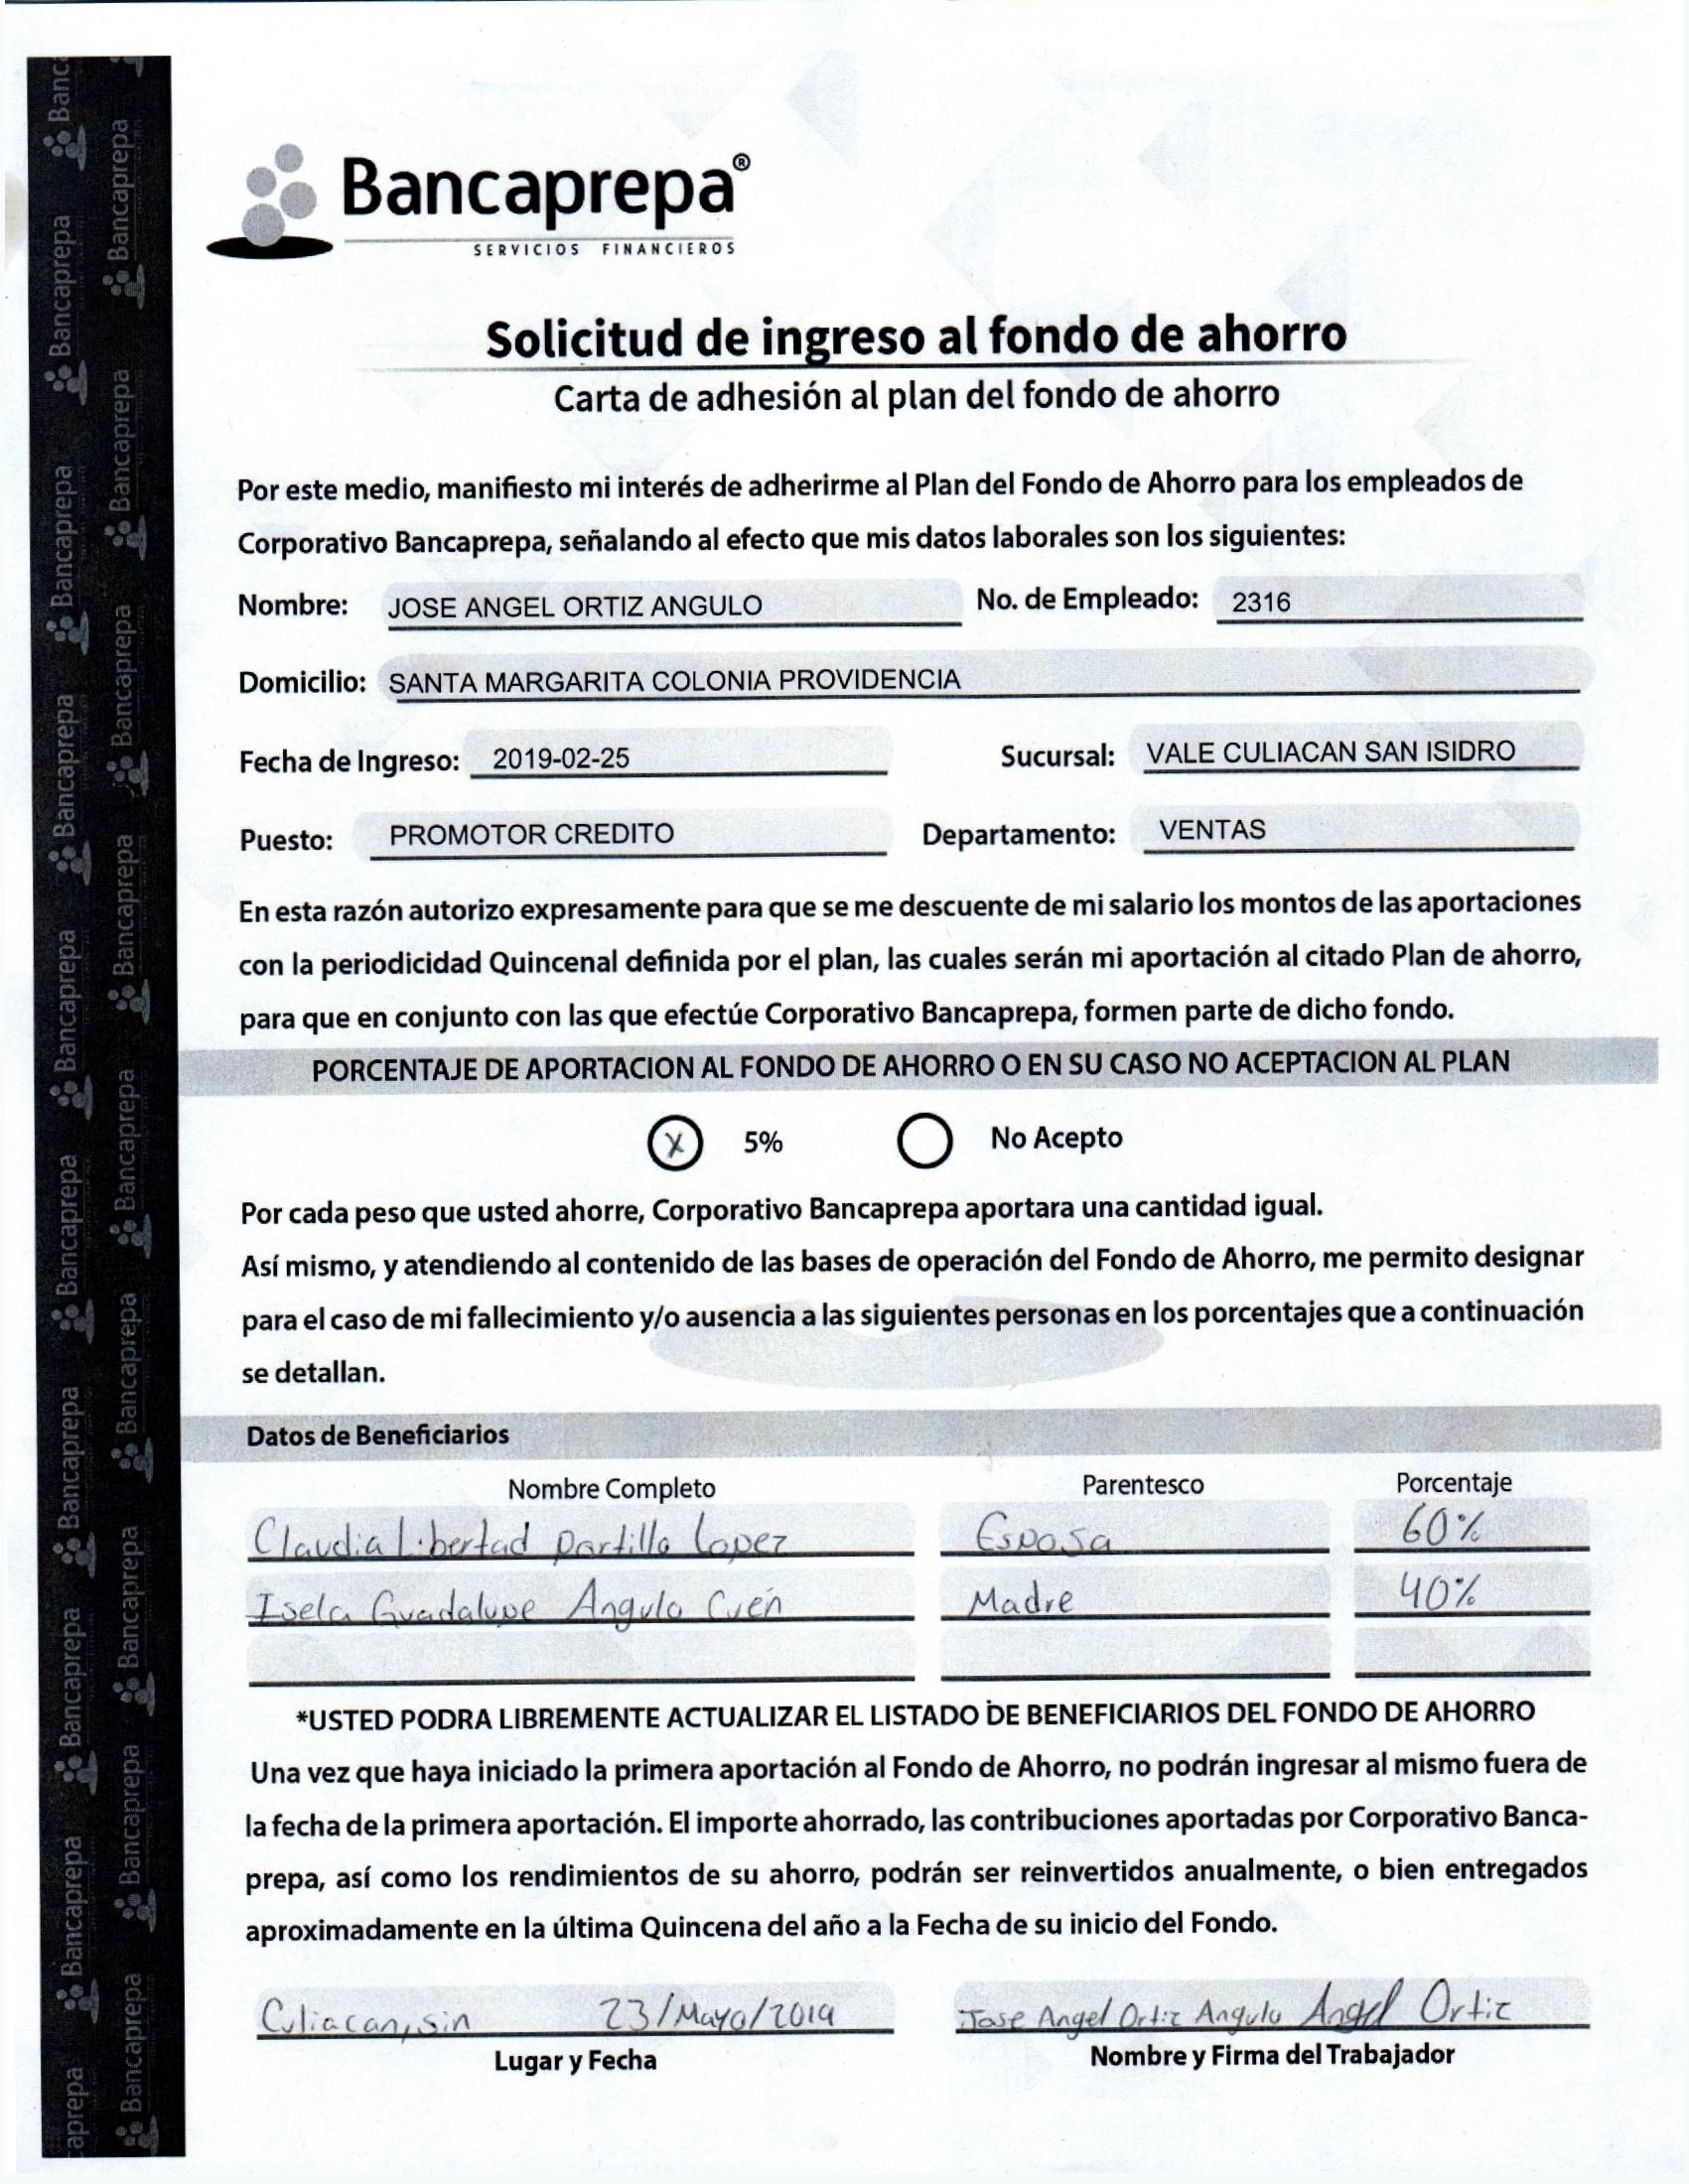 Bancaprepa®
SERVICIOS FINANCIEROS
Solicitud de ingreso al fondo de ahorro
Carta de adhesión al plan del fondo de ahorro
Por este medio, manifiesto mi interés de adherirme al Plan del Fondo de Ahorro para los empleados de
Corporativo Bancaprepa, señalando al efecto que mis datos laborales son los siguientes:
Nombre: JOSE ANGEL ORTIZ ANGULO No. de Empleado: 2316
Domicilio: SANTA MARGARITA COLONIA PROVIDENCIA
Fecha de Ingreso: 2019-02-25 Sucursal: VALE CULIACAN SAN ISIDRO
Puesto: PROMOTOR CREDITO Departamento: VENTAS
En esta razón autorizo expresamente para que se me descuente de mi salario los montos de las aportaciones
con la periodicidad Quincenal definida por el plan, las cuales serán mi aportación al citado Plan de ahorro,
para que en conjunto con las que efectúe Corporativo Bancaprepa, formen parte de dicho fondo.
PORCENTAJE DE APORTACION AL FONDO DE AHORRO O EN SU CASO NO ACEPTACION AL PLAN
X 5% No Acepto
Por cada peso que usted ahorre, Corporativo Bancaprepa aportara una cantidad igual.
Así mismo, y atendiendo al contenido de las bases de operación del Fondo de Ahorro, me permito designar
para el caso de mi fallecimiento y/o ausencia a las siguientes personas en los porcentajes que a continuación
se detallan.
Datos de Beneficiarios
Nombre Completo Parentesco Porcentaje
Claudia Libertad Portillo Lopez Esposa 60%
Isela Guadalupe Angulo Cuén Madre 40%
*USTED PODRA LIBREMENTE ACTUALIZAR EL LISTADO DE BENEFICIARIOS DEL FONDO DE AHORRO
Una vez que haya iniciado la primera aportación al Fondo de Ahorro, no podrán ingresar al mismo fuera de
la fecha de la primera aportación. El importe ahorrado, las contribuciones aportadas por Corporativo Banca-
prepa, así como los rendimientos de su ahorro, podrán ser reinvertidos anualmente, o bien entregados
aproximadamente en la última Quincena del año a la Fecha de su inicio del Fondo.
Culiacan, sin 23/Mayo/2019 Jose Angel Ortiz Angulo Angel Ortiz
Lugar y Fecha Nombre y Firma del Trabajador